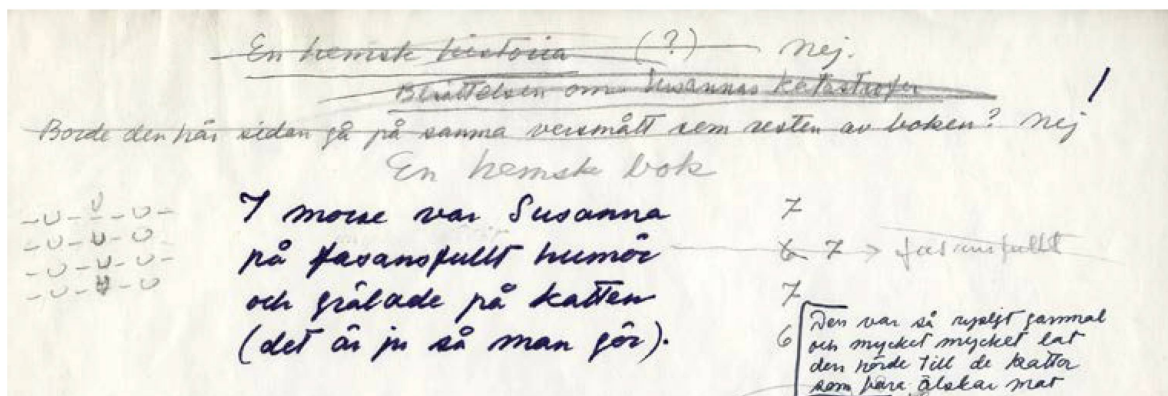 En hemsk historia (?) Nej.
Berättelsen om Susannas katastrofer
Borde den här sidan gå på samma versmått som resten av boken? Nej
En hemsk bok
I morse var Susanna 7
på fasansfullt humör 6 7 → fasansfullt
och grälade på katten 7
(det är ju så man gör). 6
Den var så rysligt gammal
och mycket mycket lat
den hörde till de katter
som bara älskar mat